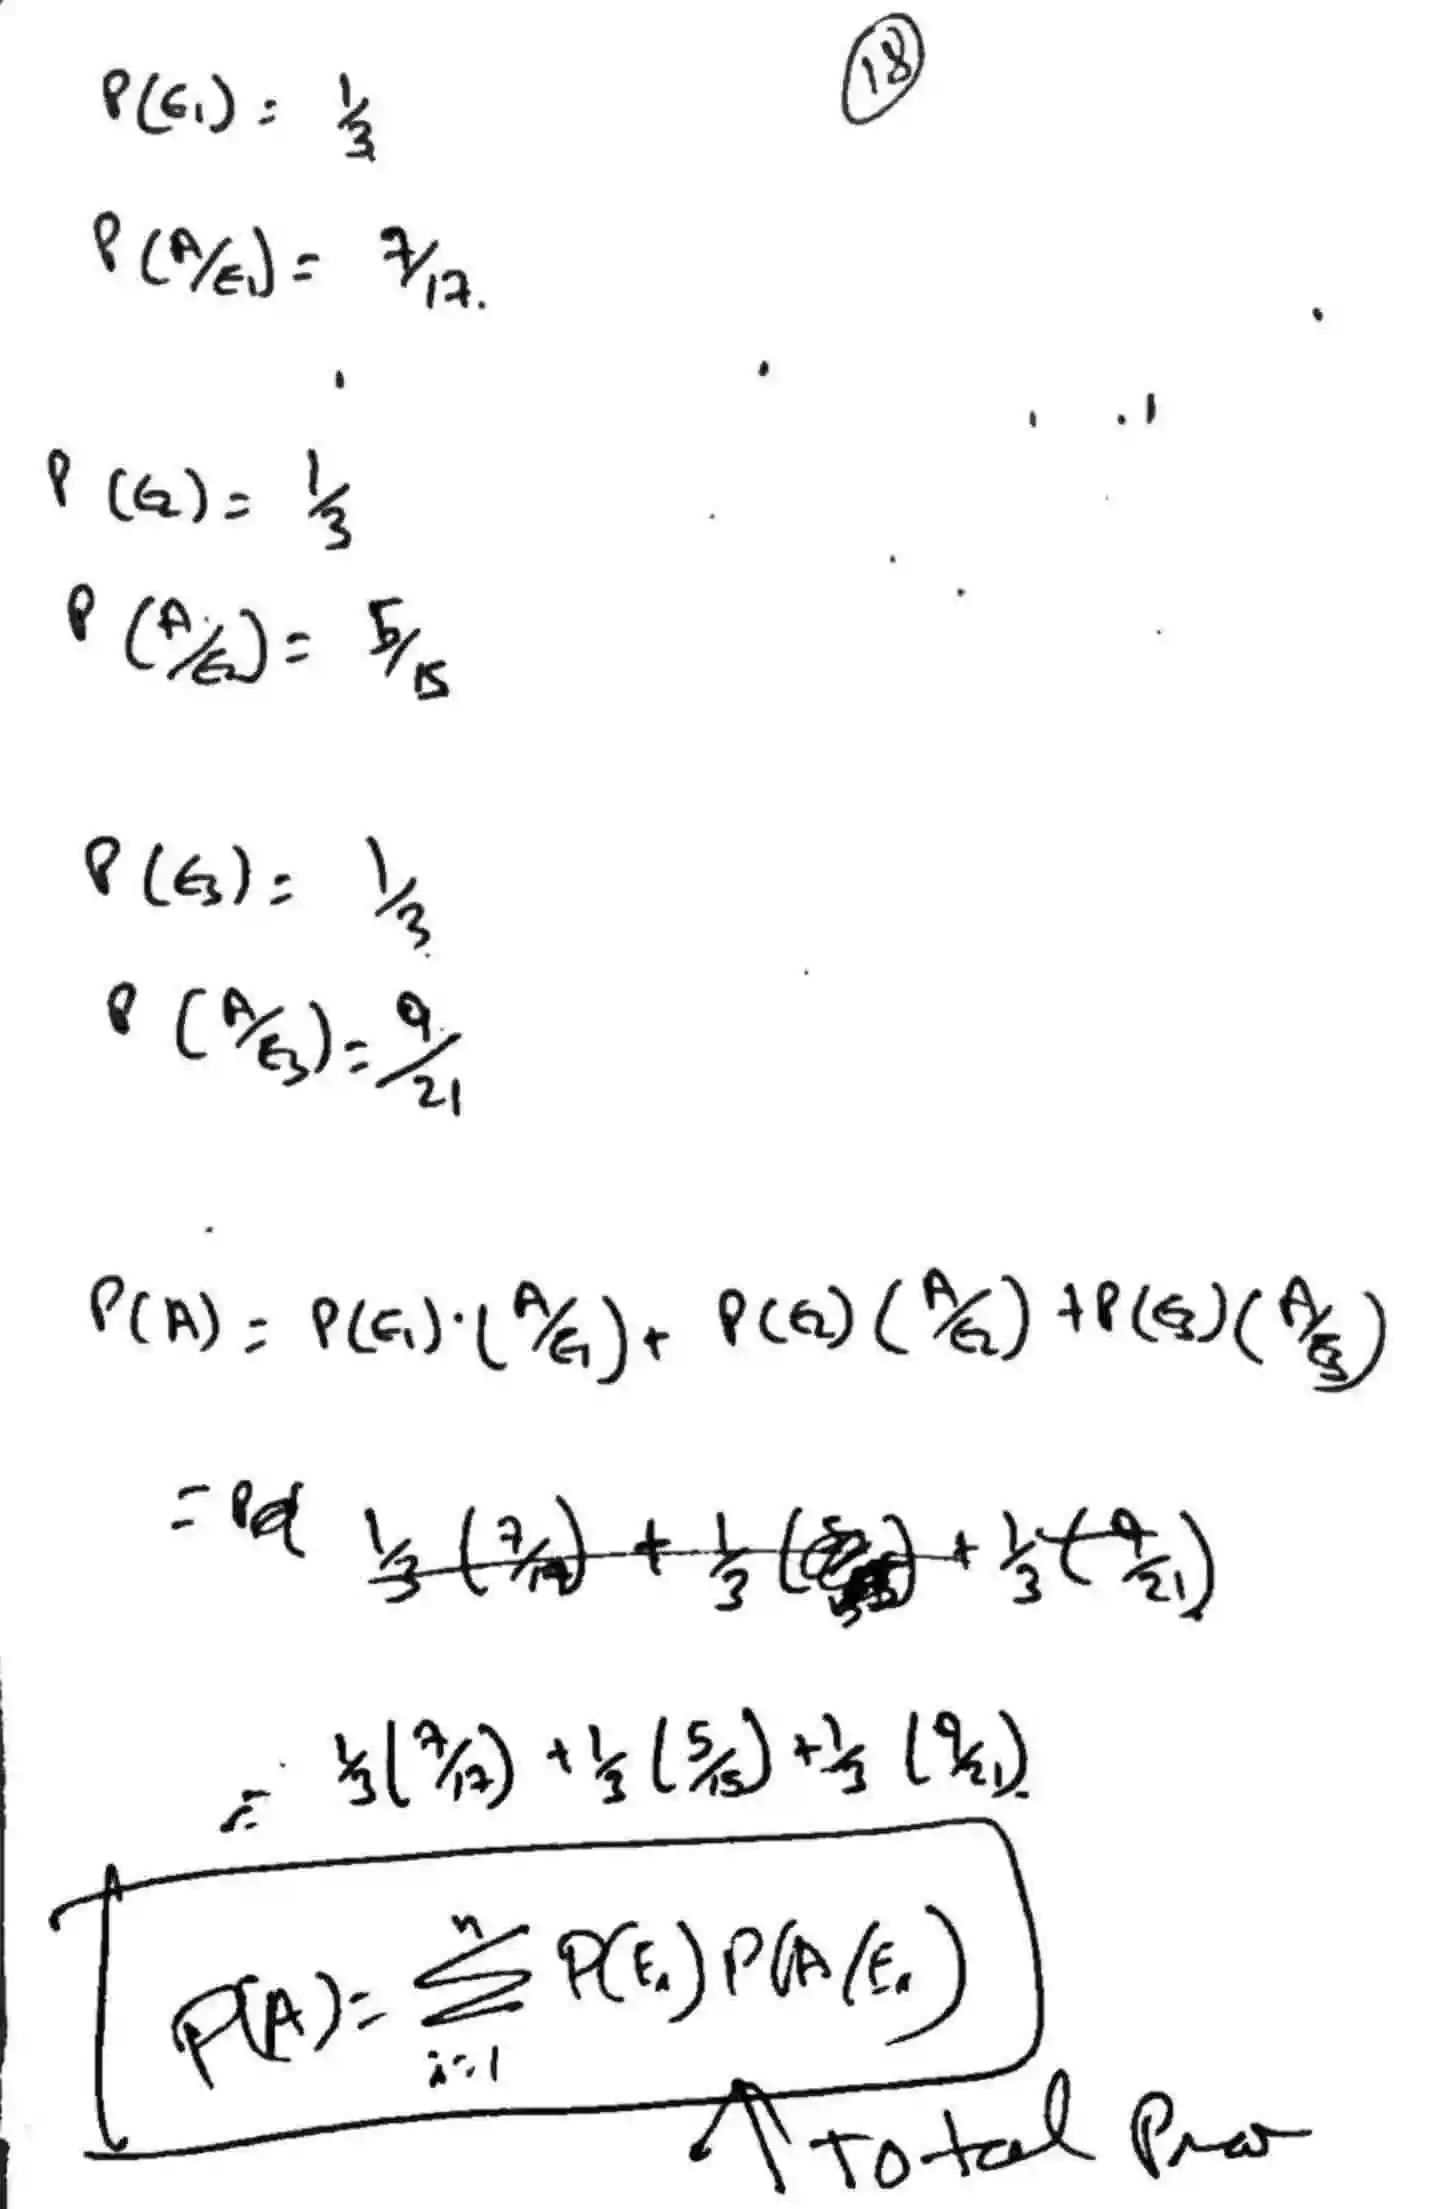 18
P(E1) = 1/3
P(A/E1) = 7/17.
P(E2) = 1/3
P(A/E2) = 5/15
P(E3) = 1/3
P(A/E3) = 9/21
P(A) = P(E1)·(A/E1) + P(E2)(A/E2) + P(E3)(A/E3)
= 1/3 (7/17) + 1/3 ( ) + 1/3 (9/21)
= 1/3(7/17) + 1/3(5/15) + 1/3(9/21)
P(A) = n∑i=1 P(Ei) P(A/Ei)
↑ Total